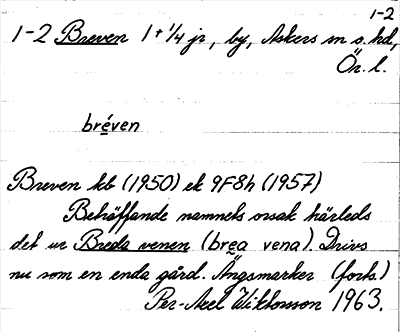 1-2
1-2 Breven 1+1/4 jr, by, Askers sn o. hd,
Ör. l.
bréven
Breven kb (1950) ek 9F8h (1957)
Beträffande namnets orsak härleds
det ur Breda venen (brea vena). Drivs
nu som en enda gård. Ängsmarker (forts.)
Per-Axel Wiktorsson 1963.